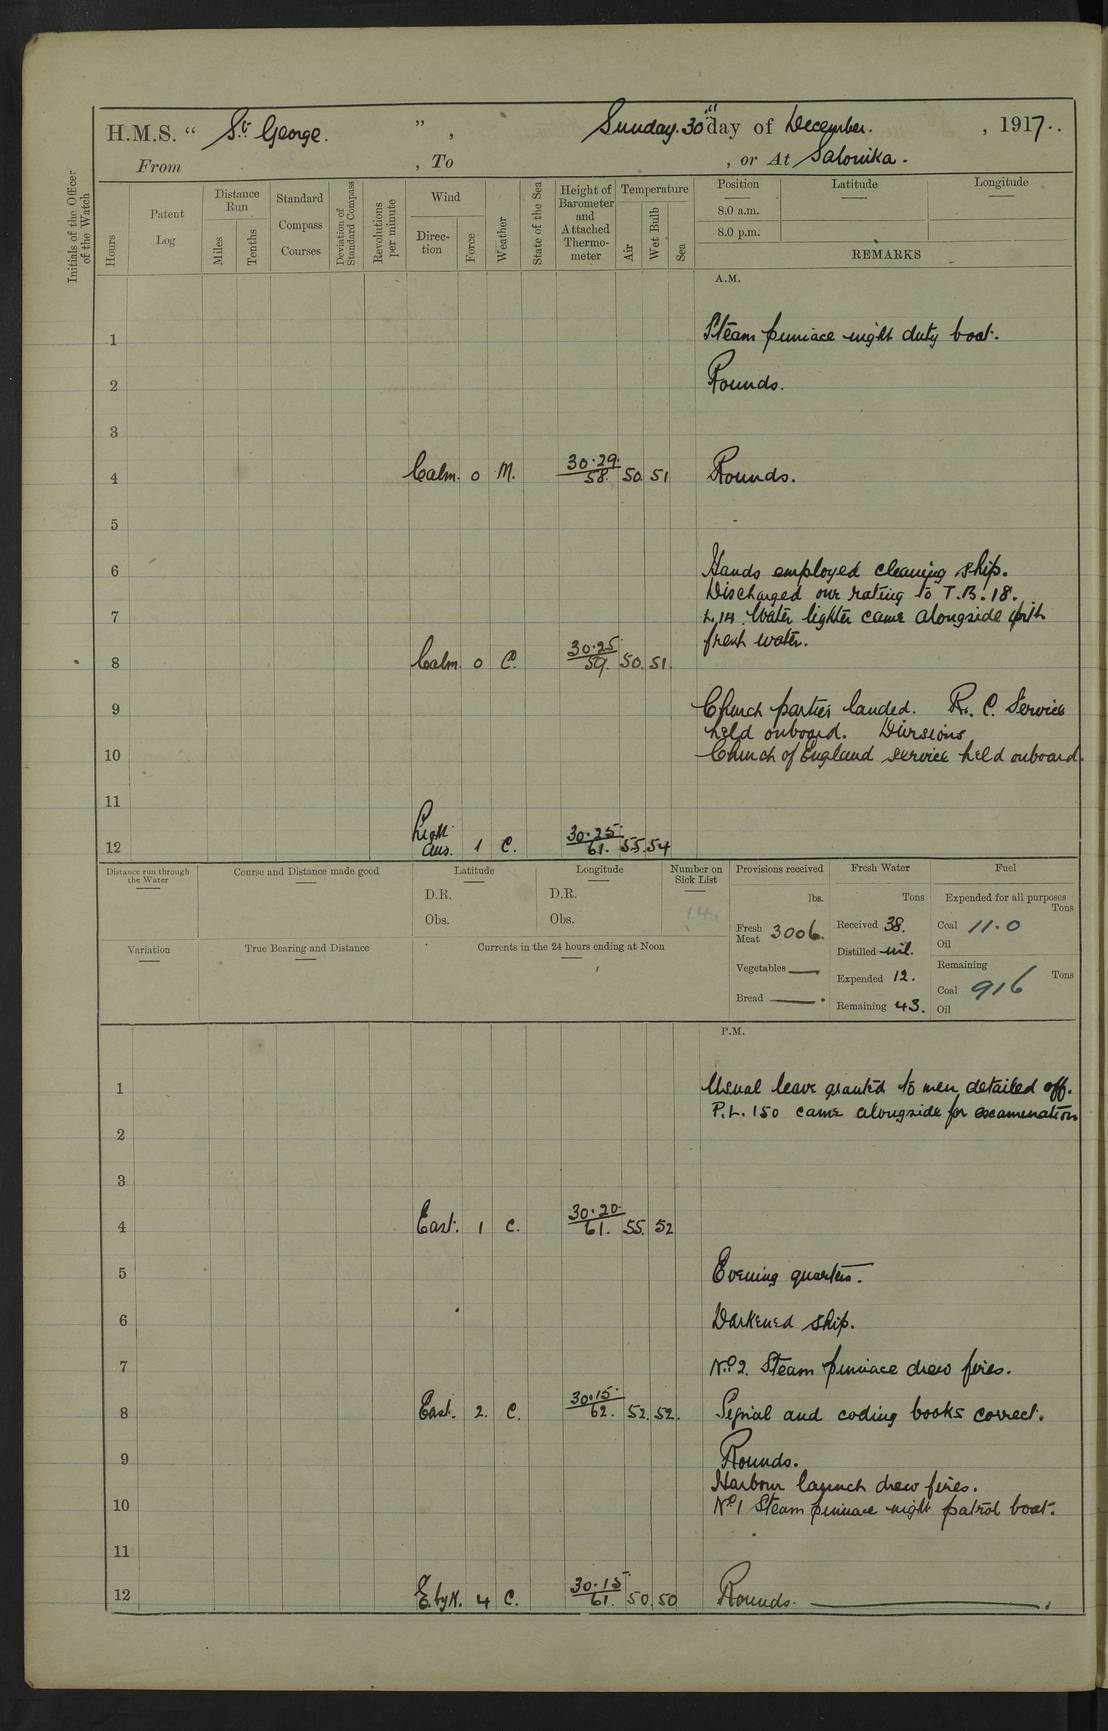 H.M.S. " St George. " , Sunday. 30th day of December. , 1917..
From , To , or At Salonika.
Initials of the Officer of the Watch
Hours
Patent Log
Distance Run
Miles
Tenths
Standard Compass Courses
Deviation of Standard Compass
Revolutions per minute
Wind
Direction
Force
Weather
State of the Sea
Height of Barometer and Attached Thermometer
Temperature
Air
Wet Bulb
Sea
Position Latitude Longitude
8.0 a.m.
8.0 p.m.
REMARKS
A.M.
1 Steam pinnace night duty boat.
2 Rounds.
3
4 Calm. 0 M. 30.29. 58. 50. 51 Rounds.
5
6 Hands employed cleaning ship.
Discharged one rating to T.B. 18.
7 L.14. Water lighter came alongside with
fresh water.
8 Calm. 0 C. 30.25 59. 50. 51.
9 Church parties landed. R. C. Service
held onboard. Divisions
10 Church of England service held onboard.
11
12 Light Aus. 1 C. 30.25. 61. 55. 54
Distance run through the Water
Course and Distance made good
Latitude
D.R.
Obs.
Longitude
D.R.
Obs.
Number on Sick List
14.
Variation
True Bearing and Distance
Currents in the 24 hours ending at Noon
Provisions received
lbs.
Fresh Meat 3006.
Vegetables —
Bread — .
Fresh Water
Tons
Received 38.
Distilled nil.
Expended 12.
Remaining 43.
Fuel
Expended for all purposes
Tons
Coal 11.0
Oil
Remaining
Tons
Coal 916
Oil
P.M.
1 Usual leave granted to men detailed off.
P.L. 150 came alongside for examination
2
3
4 East. 1 C. 30.20. 61. 55. 52
5 Evening quarters.
6 Darkened ship.
7 No. 2. Steam pinnace drew fires.
8 East. 2. C. 30.15. 62. 52. 52. Signal and coding books correct.
9 Rounds.
Harbour launch drew fires.
10 No 1 Steam pinnace night patrol boat.
11
12 E. by N. 4 C. 30.15. 61. 50. 50 Rounds.